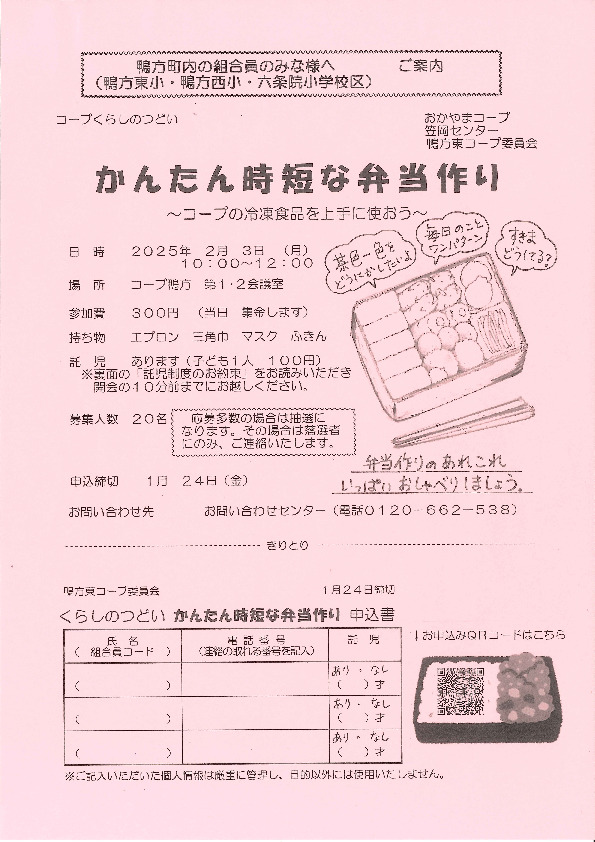 鴨方町内の組合員のみな様へ　　ご案内
（鴨方東小・鴨方西小・六条院小学校区）
コープくらしのつどい
おかやまコープ
笠岡センター
鴨方東コープ委員会
かんたん時短な弁当作り
～コープの冷凍食品を上手に使おう～
日　時　２０２５年　２月　３日　（月）
１０：００～１２：００
場　所　コープ鴨方　第１・２会議室
参加費　３００円　（当日　集金します）
持ち物　エプロン　三角巾　マスク　ふきん
託　児　あります（子ども１人　１００円）
※裏面の「託児制度のお約束」をお読みいただき
開会の１０分前までにお越しください。
茶色一色を
どうにかしたいよ
毎日のこと
ワンパターン
すきま
どうしてる？
募集人数　２０名
応募多数の場合は抽選に
なります。その場合は落選者
にのみ、ご連絡いたします。
弁当作りのあれこれ
いっぱい おしゃべりしましょう。
申込締切　１月　２４日（金）
お問い合わせ先　お問い合わせセンター（電話０１２０－６６２－５３８）
きりとり
鴨方東コープ委員会　１月２４日締切
くらしのつどい かんたん時短な弁当作り 申込書
氏　名
（　組合員コード　）
電 話 番 号
（連絡の取れる番号を記入）
託　児
（　　　）
あり・なし
（　　）才
（　　　）
あり・なし
（　　）才
（　　　）
あり・なし
（　　）才
↓お申込みＱＲコードはこちら
※ご記入いただいた個人情報は厳重に管理し、目的以外には使用いたしません。